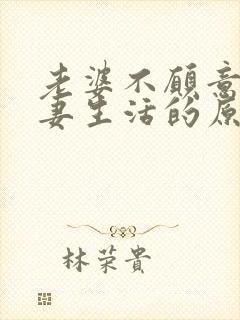 老婆不愿意
妻生活的原
林荣貴